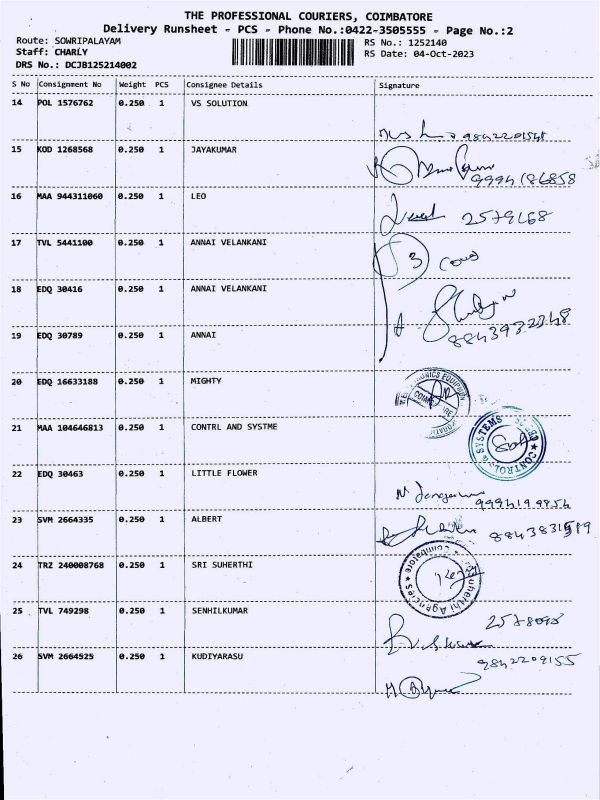 THE PROFESSIONAL COURIERS, COIMBATORE
Delivery Runsheet - PCS - Phone No.:0422-3505555 - Page No.:2
Route: SOWRIPALAYAM
RS No.: 1252140
Staff: CHARLY
RS Date: 04-Oct-2023
DRS No.: DCJB125214002
S No Consignment No Weight PCS Consignee Details Signature
14 POL 1576762 0.250 1 VS SOLUTION
9842201548
15 KOD 1268568 0.250 1 JAYAKUMAR
9994186858
16 MAA 944311060 0.250 1 LEO
2579168
17 TVL 5441100 0.250 1 ANNAI VELANKANI
3
18 EDQ 30416 0.250 1 ANNAI VELANKANI
19 EDQ 30789 0.250 1 ANNAI
20 EDQ 16633188 0.250 1 MIGHTY
21 MAA 104646813 0.250 1 CONTRL AND SYSTME
CONTROLS & SYSTEMS
22 EDQ 30463 0.250 1 LITTLE FLOWER
23 SVM 2664335 0.250 1 ALBERT
24 TRZ 240008768 0.250 1 SRI SUHERTHI
Agencies Coimbatore
25 TVL 749298 0.250 1 SENHILKUMAR
26 SVM 2664525 0.250 1 KUDIYARASU
9842209155